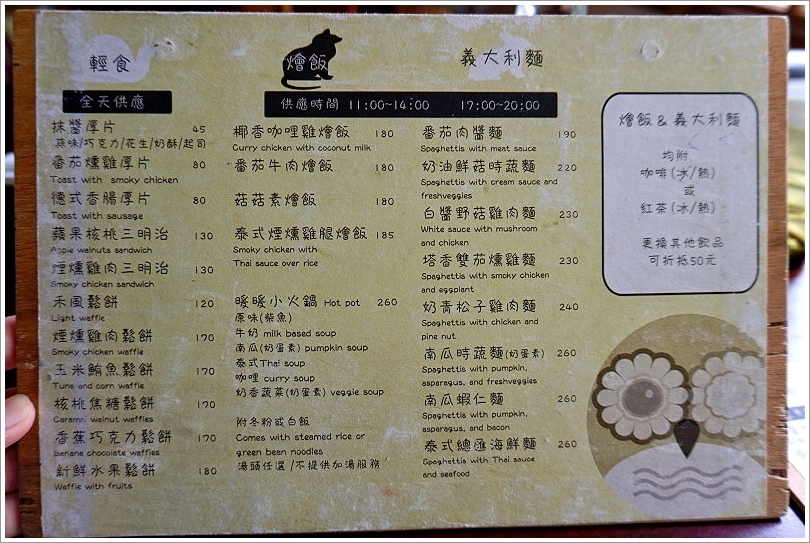 輕食
全天供應
抹醬厚片 45
蒜味/巧克力/花生/奶酥/起司
番茄燻雞厚片 80
Toast with smoky chicken
德式香腸厚片 80
Toast with sausage
蘋果核桃三明治 130
Apple walnuts sandwich
煙燻雞肉三明治 130
Smoky chicken sandwich
禾風鬆餅 120
Light waffle
煙燻雞肉鬆餅 170
Smoky chicken waffle
玉米鮪魚鬆餅 170
Tuna and corn waffle
核桃焦糖鬆餅 170
Caramel walnut waffles
香蕉巧克力鬆餅 170
Banana chocolate waffles
新鮮水果鬆餅 180
Waffle with fruits
燴飯
供應時間 11:00~14:00 17:00~20:00
椰香咖哩雞燴飯 180
Curry chicken with coconut milk
番茄牛肉燴飯 180
菇菇素燴飯 180
泰式煙燻雞腿燴飯 185
Smoky chicken with
Thai sauce over rice
暖暖小火鍋 Hot pot 260
原味(柴魚)
牛奶 milk based soup
南瓜(奶蛋素) pumpkin soup
泰式Thai soup
咖哩 curry soup
奶香蔬菜(奶蛋素) veggie soup
附冬粉或白飯
Comes with steamed rice or
green bean noodles
湯頭任選/不提供加湯服務
義大利麵
番茄肉醬麵 190
Spaghettis with meat sauce
奶油鮮菇時蔬麵 220
Spaghettis with cream sauce and
freshveggies
白醬野菇雞肉麵 230
White sauce with mushroom
and chicken
塔香雙茄燻雞麵 230
Spaghettis with smoky chicken
and eggplant
奶青松子雞肉麵 240
Spaghettis with chicken and
pine nut
南瓜時蔬麵(奶蛋素) 260
Spaghettis with pumpkin,
asparagus, and freshveggies
南瓜蝦仁麵 260
Spaghettis with pumpkin,
asparagus, and bacon
泰式總匯海鮮麵 260
Spaghettis with Thai sauce
and seafood
燴飯&義大利麵
均附
咖啡(冰/熱)
或
紅茶(冰/熱)
更換其他飲品
可折抵50元